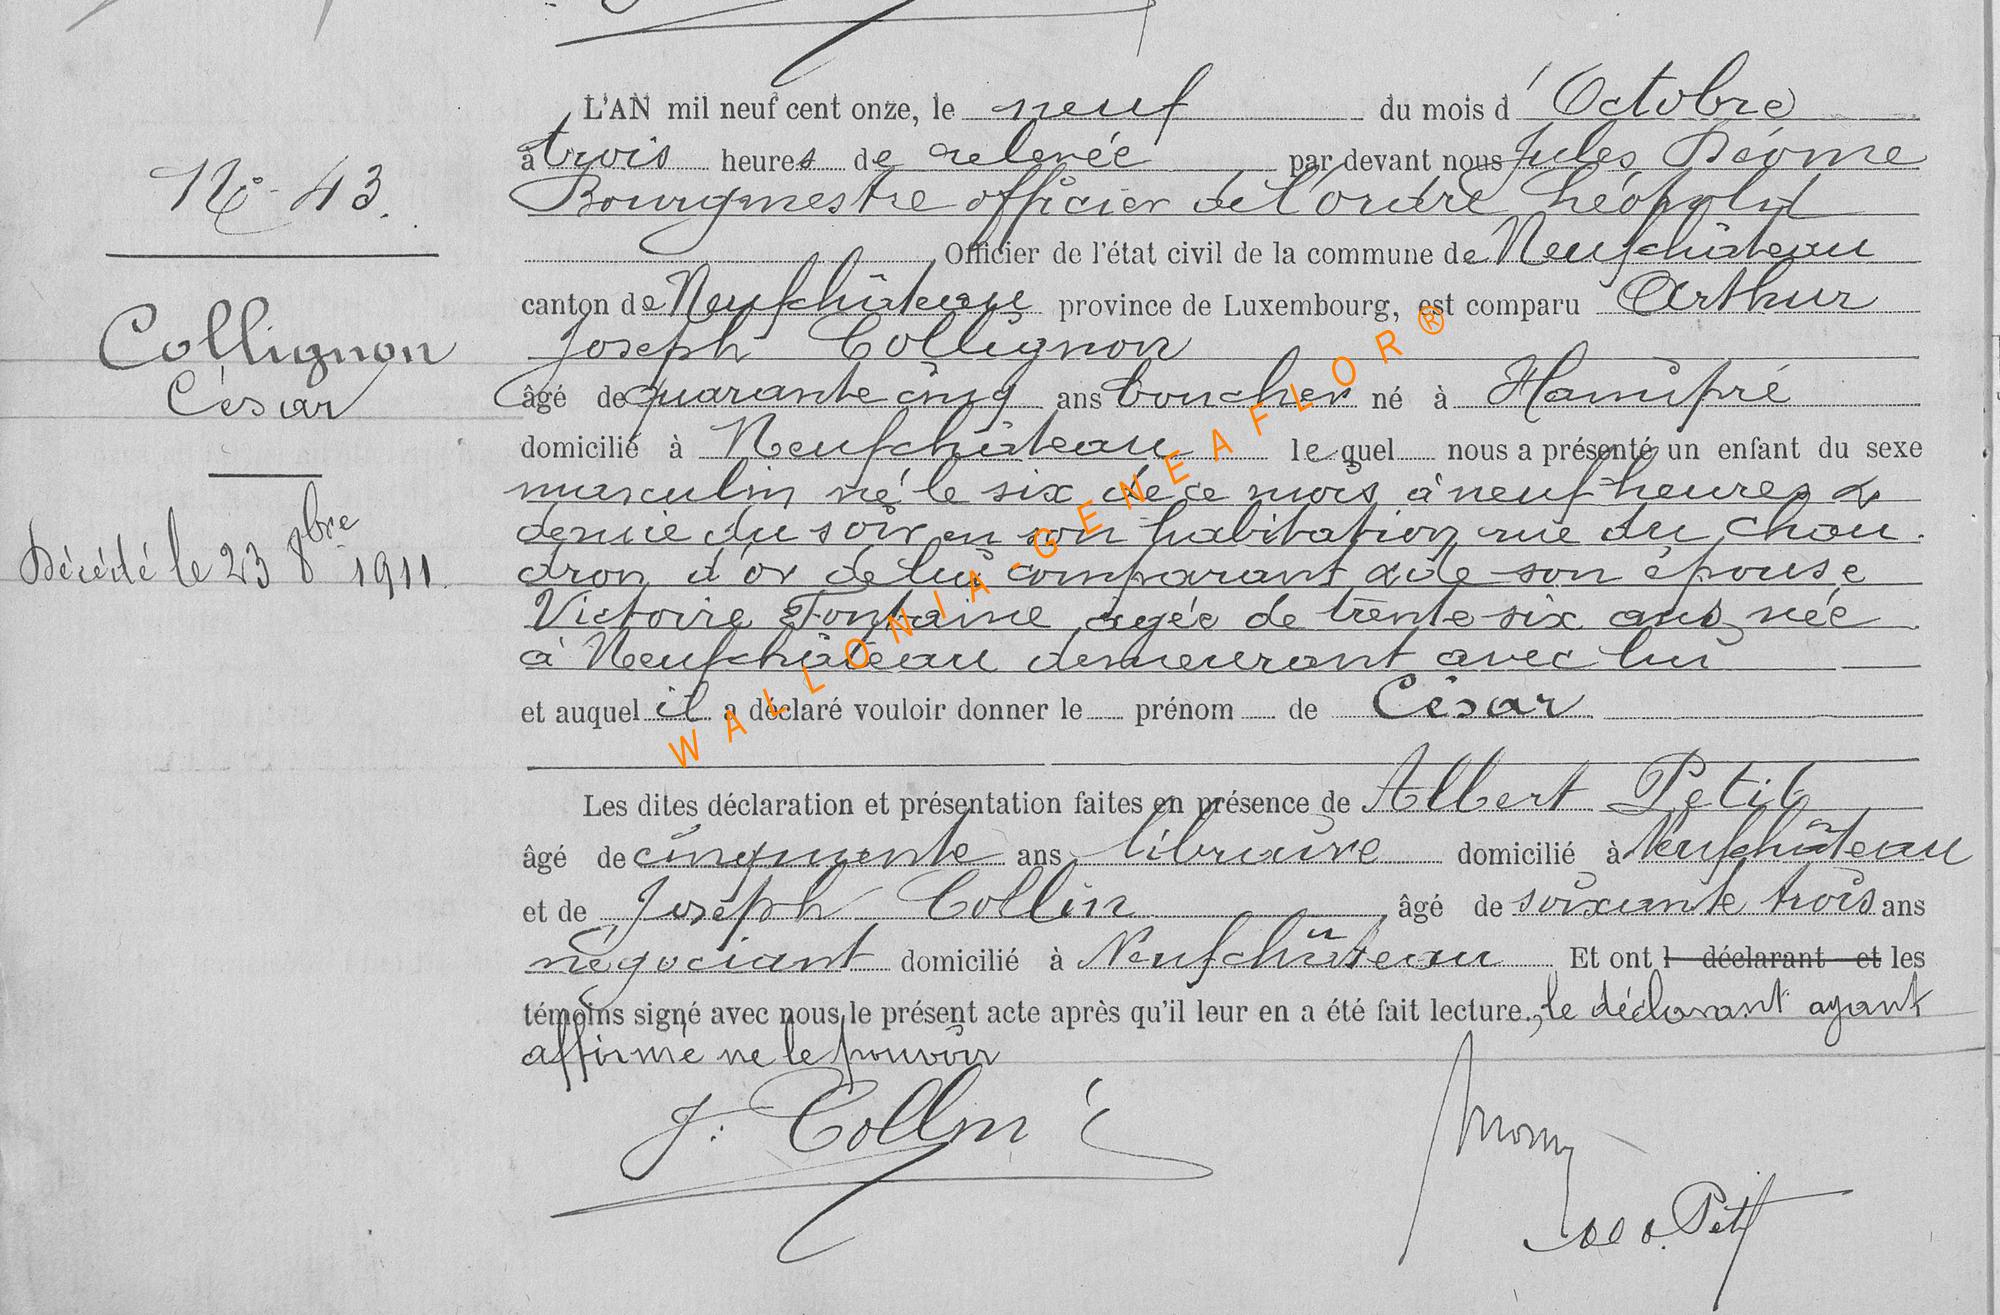 N° 43.
Collignon
César
Décédé le 23 8bre 1911.
L'AN mil neuf cent onze, le neuf du mois d'Octobre
à trois heures de relevée par devant nous Jules
Bourgmestre officier de l'ordre Léopold
Officier de l'état civil de la commune de Neufchâteau
canton de Neufchâteau province de Luxembourg, est comparu Arthur
Joseph Collignon
âgé de quarante cinq ans boucher né à Hamipré
domicilié à Neufchâteau lequel nous a présenté un enfant du sexe
masculin né le six de ce mois à neuf heures &
demie du soir en son habitation rue du chau
dron d'or de lui comparant & de son épouse
Victoire Fontaine agée de trente six ans, née
à Neufchâteau demeurant avec lui
et auquel il a déclaré vouloir donner le prénom de César
Les dites déclaration et présentation faites en présence de Albert Petit
âgé de cinquante ans libraire domicilié à Neufchâteau
et de Joseph Collin âgé de soixante trois ans
négociant domicilié à Neufchâteau Et ont l déclarant et les
témoins signé avec nous le présent acte après qu'il leur en a été fait lecture., le déclarant ayant
affirmé ne le pouvoir
J. Collin
Petit
WALLONIA-GENEAFLOR®